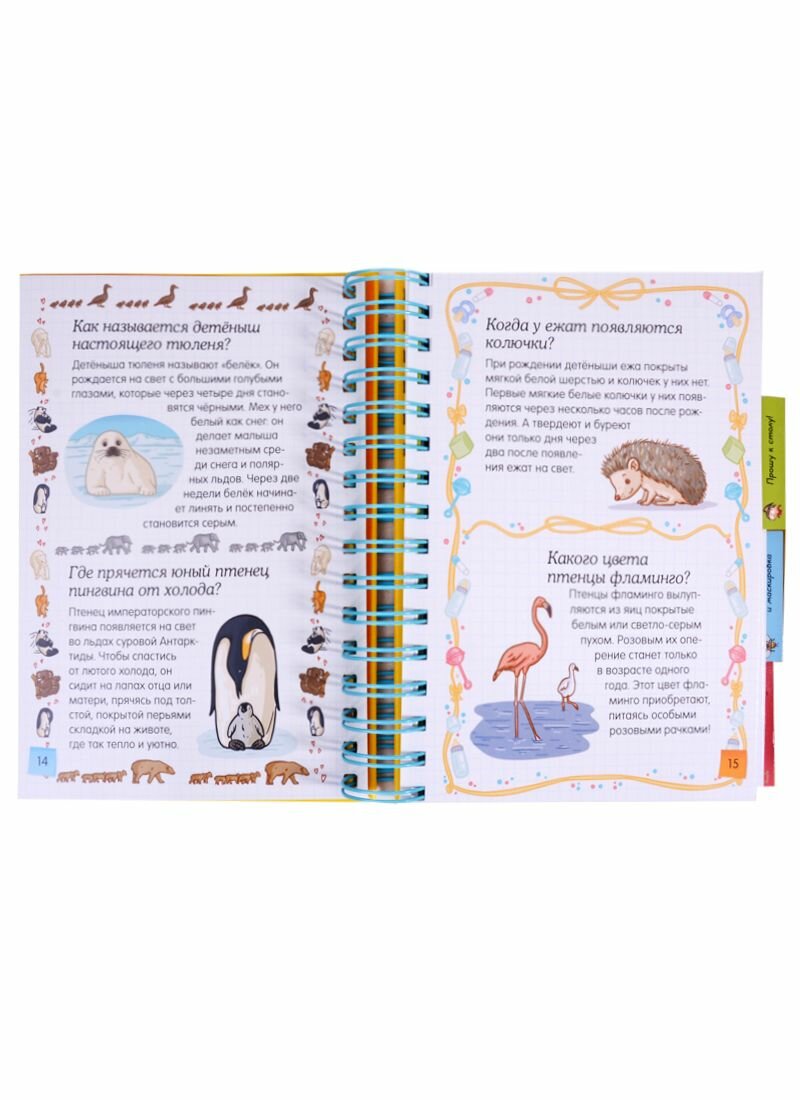 Как называется детёныш
настоящего тюленя?
Детёныша тюленя называют «белёк». Он
рождается на свет с большими голубыми
глазами, которые через четыре дня стано-
вятся чёрными. Мех у него
белый как снег: он
делает малыша
незаметным сре-
ди снега и поляр-
ных льдов. Через две
недели белёк начина-
ет линять и постепенно
становится серым.
Где прячется юный птенец
пингвина от холода?
Птенец императорского пин-
гвина появляется на свет
во льдах суровой Антарк-
тиды. Чтобы спастись
от лютого холода, он
сидит на лапах отца или
матери, прячась под тол-
стой, покрытой перьями
складкой на животе,
где так тепло и уютно.
14
Когда у ежат появляются
колючки?
При рождении детёныши ежа покрыты
мягкой белой шерстью и колючек у них нет.
Первые мягкие белые колючки у них появ-
ляются через несколько часов после рож-
дения. А твердеют и буреют
они только дня через
два после появле-
ния ежат на свет.
Какого цвета
птенцы фламинго?
Птенцы фламинго вылуп-
ляются из яиц покрытые
белым или светло-серым
пухом. Розовым их опе-
рение станет только
в возрасте одного
года. Этот цвет фла-
минго приобретают,
питаясь особыми
розовыми рачками!
15
Прошу к столу!
и маскировка